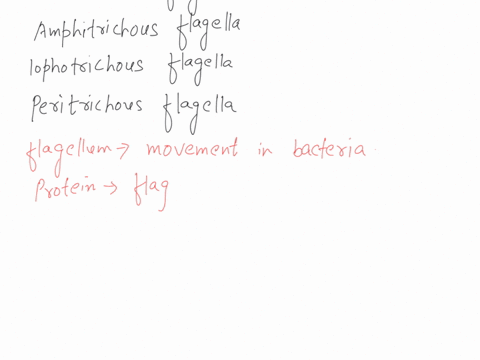 Amphitrichous flagella
lophotrichous flagella
Peritrichous flagella
flagellum → movement in bacteria.
Protein → flag